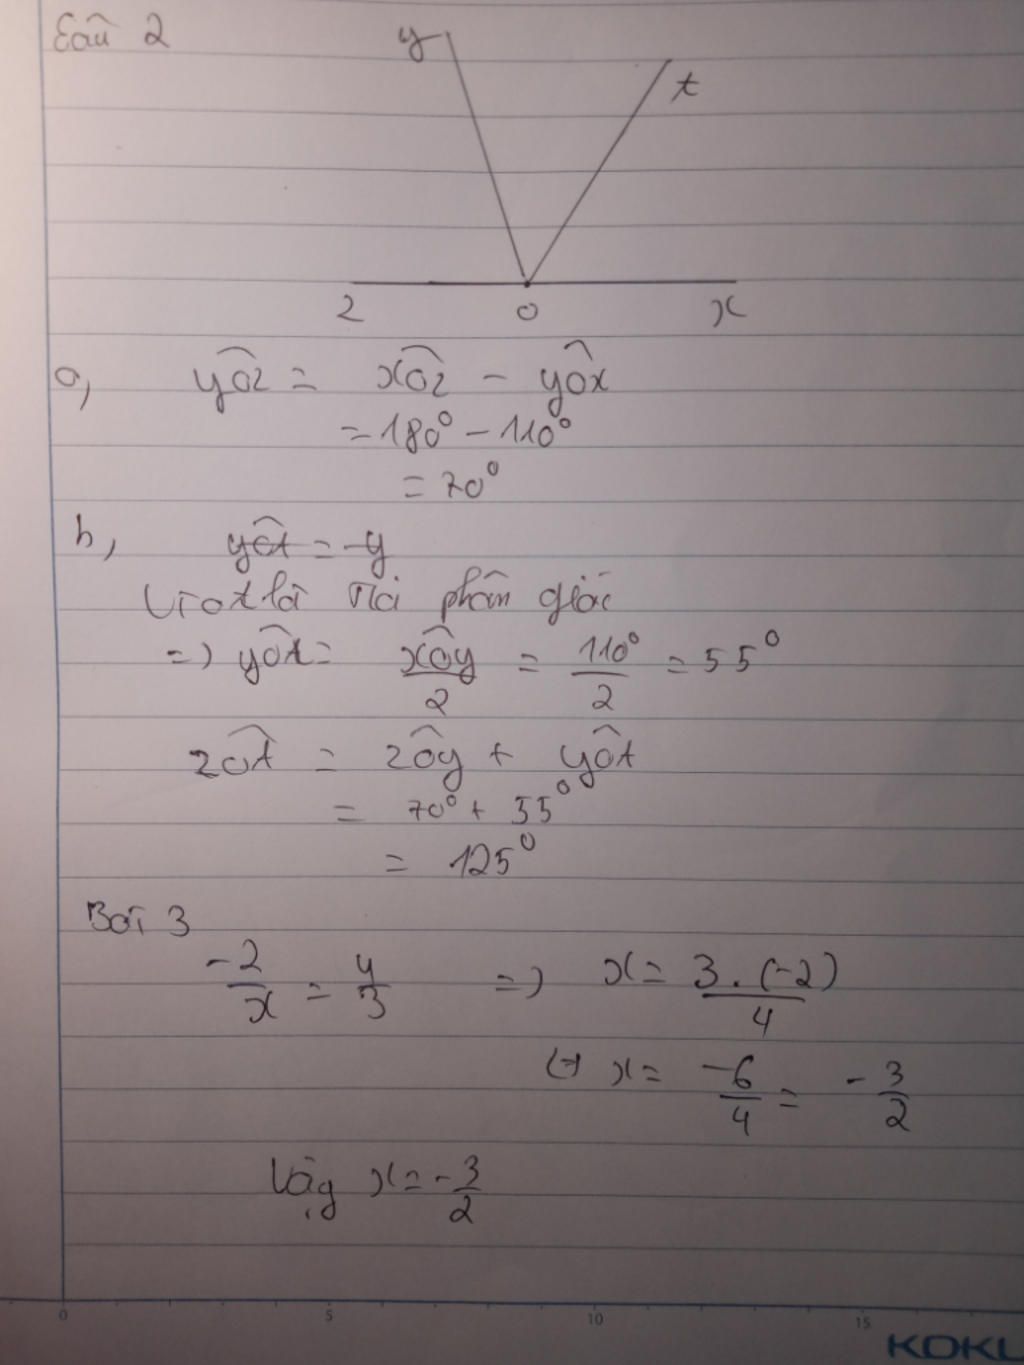 Câu 2
y
t
z O x
a, yÔz = xÔz - yÔx
= 180° - 110°
= 70°
b, yÔt = -y
Vì Ot là tia phân giác
=> yÔt = xÔy/2 = 110°/2 = 55°
zÔt = zÔy + yÔt
= 70° + 55°
= 125°
Bài 3
-2/x = 4/3 => x = 3.(-2)/4
<=> x = -6/4 = -3/2
Vậy x = -3/2
0 5 10 15
KOKU